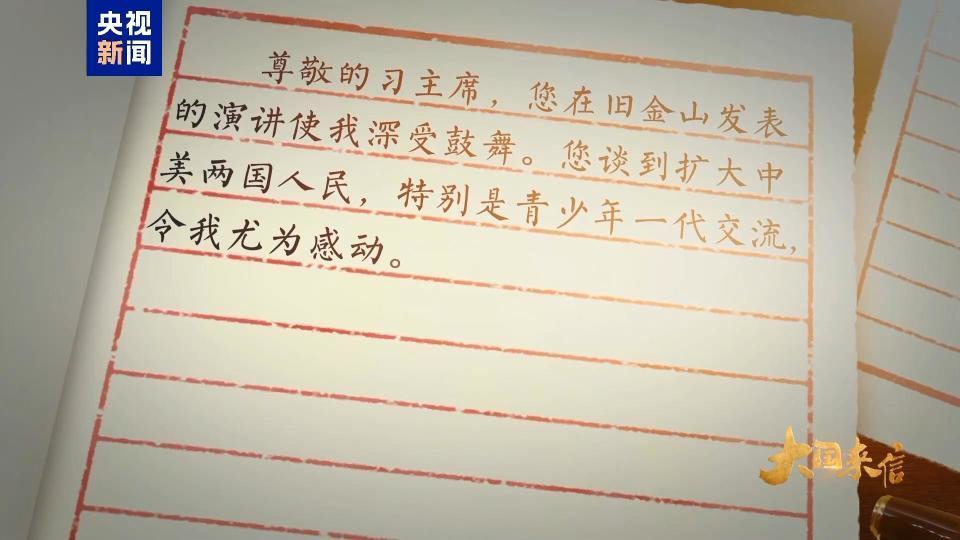 央视
新闻
尊敬的习主席，您在旧金山发表
的演讲使我深受鼓舞。您谈到扩大中
美两国人民，特别是青少年一代交流，
令我尤为感动。
大国来信